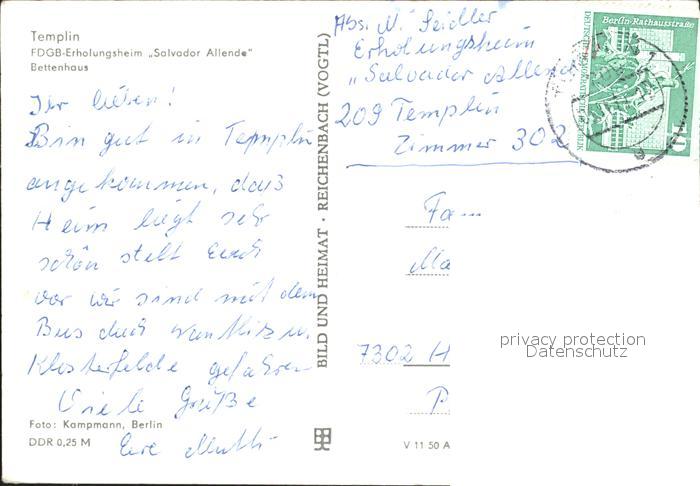 Templin
FDGB-Erholungsheim „Salvador Allende"
Bettenhaus
Ihr lieben!
Bin gut in Templin
angekommen, das
Heim liegt sehr
schön stellt Euch
vor wir sind mit dem
Bus durch Wandlitz u.
Klosterfelde gefahren
Viele Grüße
Eure Mutti
Foto: Kampmann, Berlin
DDR 0,25 M
BILD UND HEIMAT · REICHENBACH (VOGTL)
V 11 50 A
Abs. M. Seidler
Erholungsheim
„Salvador Allende
209 Templin
Zimmer 302
Berlin-Rathausstraße
DEUTSCHE DEMOKRATISCHE REPUBLIK
10
Fa
Ma
7302 H
P
privacy protection
Datenschutz